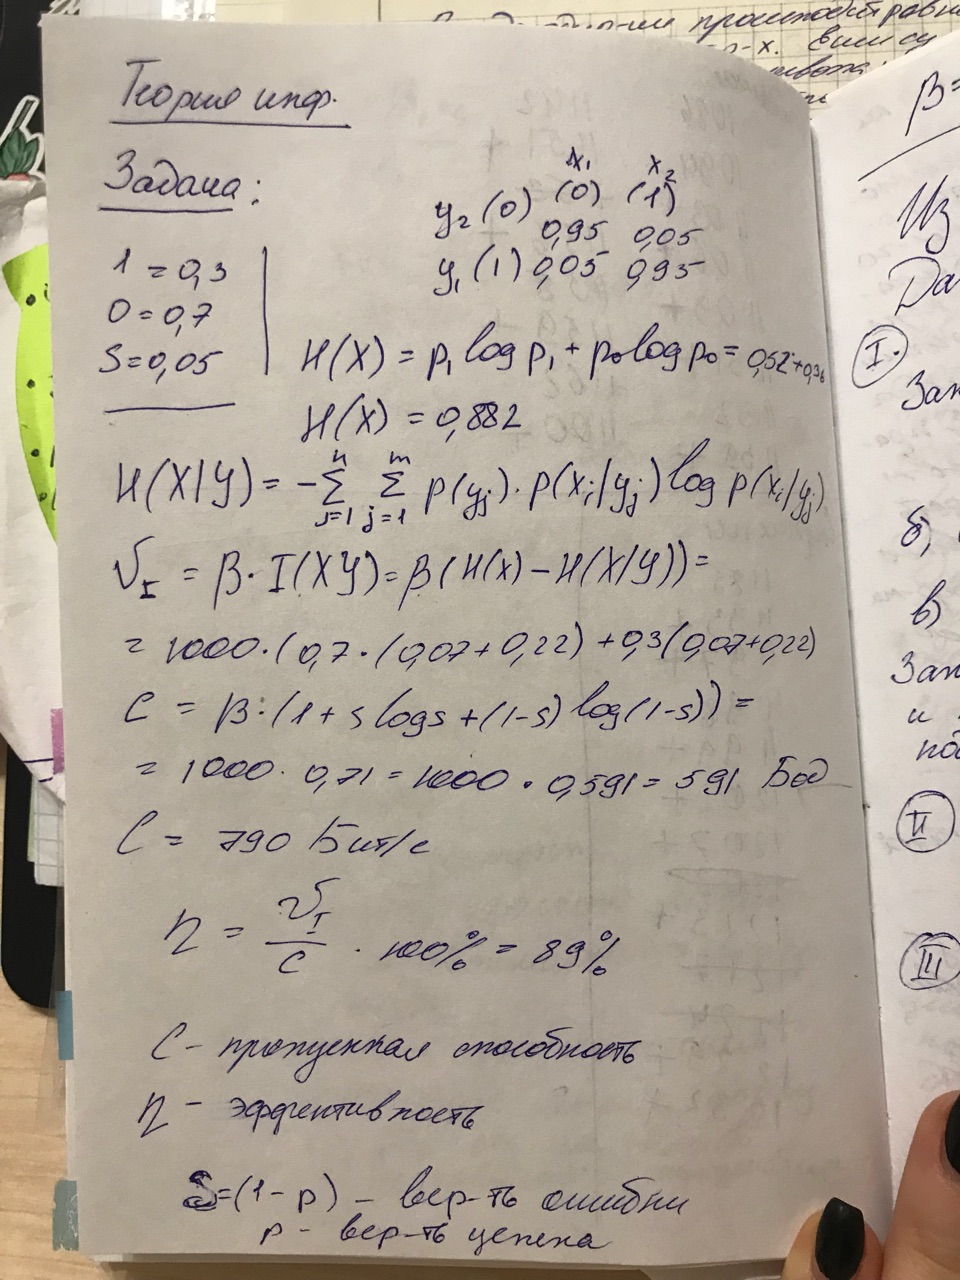 Теория инф.
Задача:
1 = 0,3
0 = 0,7
S = 0,05
x₁ x₂
(0) (1)
y₂ (0) 0,95 0,05
y₁ (1) 0,05 0,95
H(X) = p₁ log p₁ + p₀ log p₀ = 0,52 + 0,36
H(X) = 0,882
H(X/Y) = - Σ Σ p(yⱼ) · p(xᵢ/yⱼ) log p(xᵢ/yⱼ)
n m
j=1 j=1
𝒱_I = β · I(XY) = β(H(X) - H(X/Y)) =
= 1000 · (0,7 · (0,07 + 0,22) + 0,3(0,07+0,22)
C = β · (1 + s log s + (1-s) log(1-s)) =
= 1000 · 0,71 = 1000 · 0,591 = 591 Бод
C = 790 Бит/с
η = 𝒱_I / C · 100% = 89%
C - пропускная способность
η - эффективность
S = (1 - p) - вер-ть ошибки
p - вер-ть успеха
β=
Из
Да
I.
Зап
б)
в)
Зап
и
под
II
III